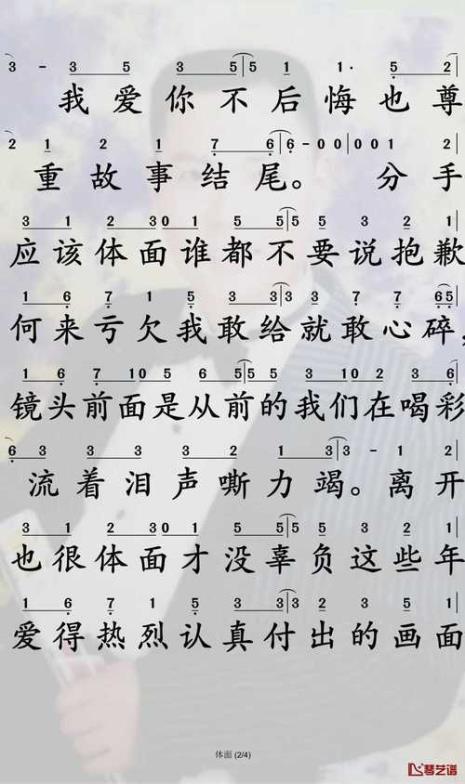 3 - 3 5 3 5 5 1 1· 5 2
我爱你不后悔也尊
2 1 2 1 7 6 6 - 0 0 0 0 1 2
重故事结尾。 分手
3 1 2 3 0 1 5 5 5 5 3 2 1
应该体面谁都不要说抱歉
1 6 7 1 5 3 3 3 3 7 7 6 5
何来亏欠我敢给就敢心碎,
1 6 7 1 0 5 5 6 5 5 3 3 1 0 3 6
镜头前面是从前的我们在喝彩
6 3 3 3 3 2 1 3 3 - 1 2
流着泪声嘶力竭。离开
3 1 2 3 0 1 5 5 5 5 3 2 1
也很体面才没辜负这些年
1 6 7 1 5 3 3 3 2 3 5 1
爱得热烈认真付出的画面
体面 (2/4)
琴艺谱